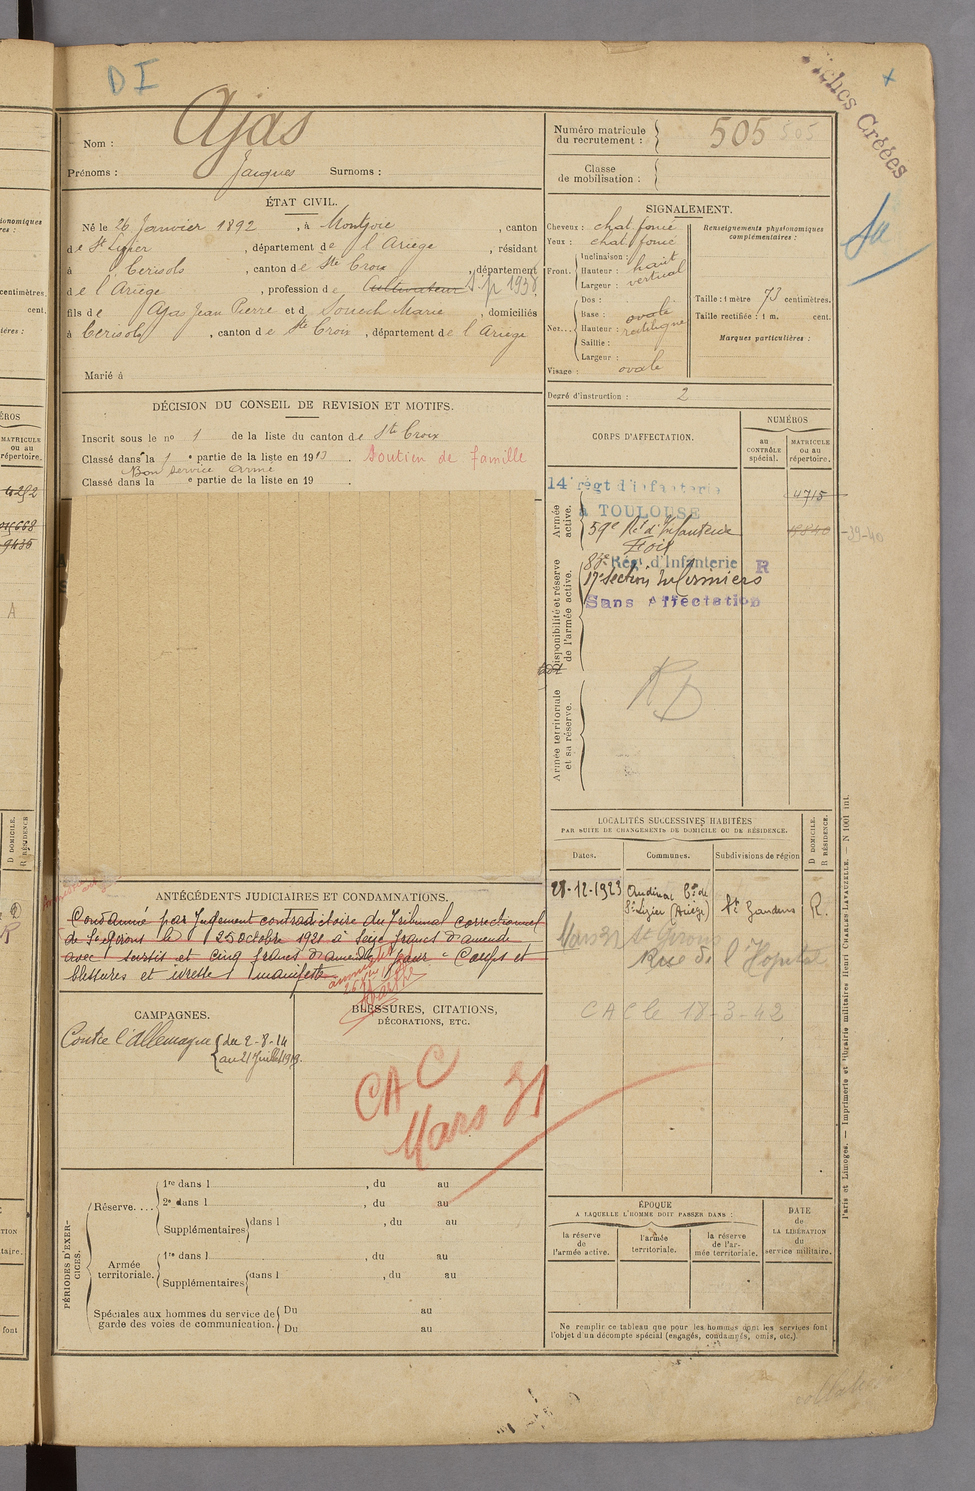 D I
Fiches Créées
Nom : Ajas
Prénoms : Jacques Surnoms :
Numéro matricule du recrutement : 505
Classe de mobilisation :
ÉTAT CIVIL.
Né le 26 Janvier 1892, à Montjoie, canton
de St Lizier, département de l'Ariège, résidant
à Cerisols, canton de Ste Croix, département
de l'Ariège, profession de Cultivateur S.P 1938
fils de Ajas Jean Pierre et de Souech Marie, domiciliés
à Cerisols, canton de Ste Croix, département de l'Ariège
Marié à
SIGNALEMENT.
Cheveux : chat. foncé
Yeux : chat. foncé
Front. Inclinaison :
Hauteur : haut
Largeur : vertical
Nez... Dos :
Base : ovale
Hauteur : rectiligne
Saillie :
Largeur :
Visage : ovale
Renseignements physionomiques complémentaires :
Taille : 1 mètre 73 centimètres.
Taille rectifiée : 1 m. cent.
Marques particulières :
Degré d'instruction : 2
DÉCISION DU CONSEIL DE REVISION ET MOTIFS.
Inscrit sous le no 1 de la liste du canton de Ste Croix
Classé dans la 1 e partie de la liste en 1913. Soutien de famille
Bon service armé
Classé dans la e partie de la liste en 19
CORPS D'AFFECTATION.
NUMÉROS
au CONTRÔLE spécial.
MATRICULE ou au répertoire.
Armée active.
14 régt d'infanterie 4715
à TOULOUSE
59e Rt d'Infanterie
Foix
Disponibilité et réserve de l'armée active.
83e Régt d'Infanterie R
17e Section Infirmiers
Sans Affectation
Armée territoriale et sa réserve.
LOCALITÉS SUCCESSIVES HABITÉES
PAR SUITE DE CHANGEMENTS DE DOMICILE OU DE RÉSIDENCE.
Dates. Communes. Subdivisions de région
D DOMICILE. R RÉSIDENCE.
28-12-1923 Audinac Cne de St Lizier (Ariège) St Gaudens R.
Mars 31 St Girons
Rue de l'Hopital
CAC le 18-3-42
ANTÉCÉDENTS JUDICIAIRES ET CONDAMNATIONS.
Condamné par Jugement contradictoire du Tribunal correctionnel
de St Girons le 25 Octobre 1921 à Seize francs d'amende
avec sursis et cinq francs d'amende pour " Coups et
blessures et ivresse manifeste
CAMPAGNES.
Contre l'Allemagne du 2-8-14
au 21 Juillet 1919.
BLESSURES, CITATIONS,
DÉCORATIONS, ETC.
CAC
Mars 31
PÉRIODES D'EXERCICES.
Réserve.... 1re dans l , du au
2e dans l , du au
Supplémentaires dans l , du au
Armée territoriale. 1re dans l , du au
Supplémentaires dans l , du au
Spéciales aux hommes du service de garde des voies de communication. Du au
Du au
ÉPOQUE
A LAQUELLE L'HOMME DOIT PASSER DANS :
la réserve de l'armée active.
l'armée territoriale.
la réserve de l'armée territoriale.
DATE de LA LIBÉRATION du service militaire.
Ne remplir ce tableau que pour les hommes dont les services font
l'objet d'un décompte spécial (engagés, condamnés, omis, etc.).
Paris et Limoges. — Imprimerie et librairie militaires Henri CHARLES-LAVAUZELLE. — N 1001 int.